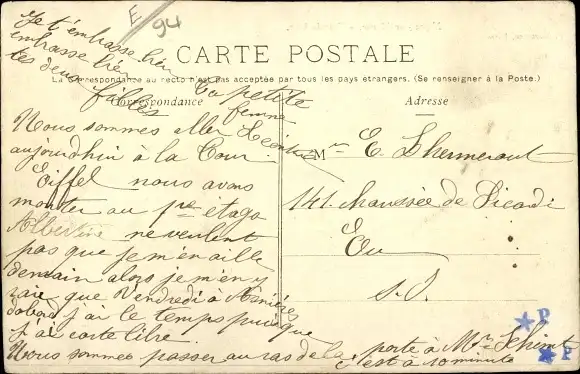 E
94
CARTE POSTALE
La Correspondance au recto n'est pas acceptée par tous les pays étrangers. (Se renseigner à la Poste.)
Correspondance
Adresse
Je t'embrasse bien
embrasse bien
tes deux
filles
Ta petite
femme
Léontine
Nous sommes aller
aujourdhui à la Tour
Eiffel nous avons
monter au 1er étage
Albertine ne veulent
pas que je m'en aille
demain alors je m'en y
raie que Vendredi à Asnières
dabord j'ai le temps puisque
j'ai carte libre.
Nous sommes passer au ras de la porte à Mr Schimt
c'est à 10 minute
Mr E. Lhermeraut
141. chaussée de Picardi
Eu
S. I.
P
P